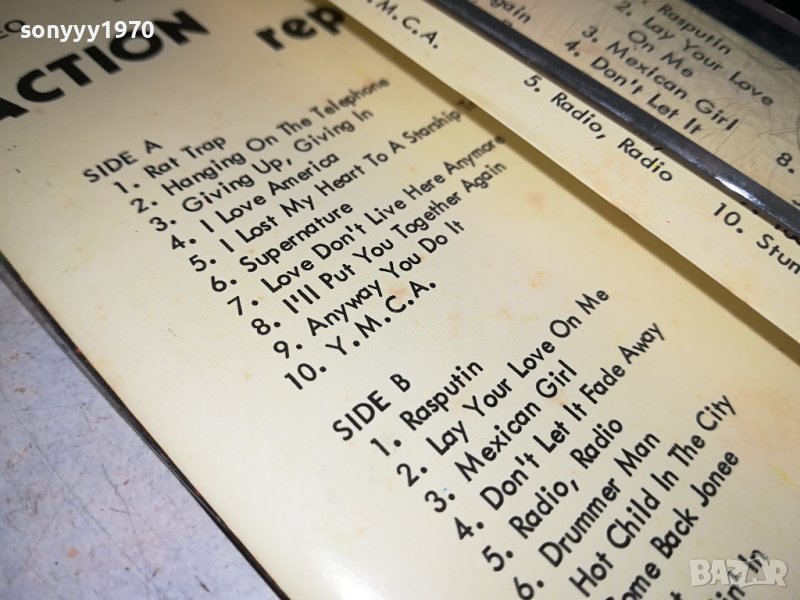 sonyyy1970
ACTION rep
SIDE A
1. Rat Trap
2. Hanging On The Telephone
3. Giving Up, Giving In
4. I Love America
5. I Lost My Heart To A Starship
6. Supernature
7. Love Don't Live Here Anymore
8. I'll Put You Together Again
9. Anyway You Do It
10. Y.M.C.A.
SIDE B
1. Rasputin
2. Lay Your Love On Me
3. Mexican Girl
4. Don't Let It Fade Away
5. Radio, Radio
6. Drummer Man
Hot Child In The City
ome Back Jonee
Y.M.C.A.
5. Radio, Radio
10. Stun
Rasputin
2. Lay Your Love
On Me
3. Mexican Girl
4. Don't Let It
8.
BAZAR
bg